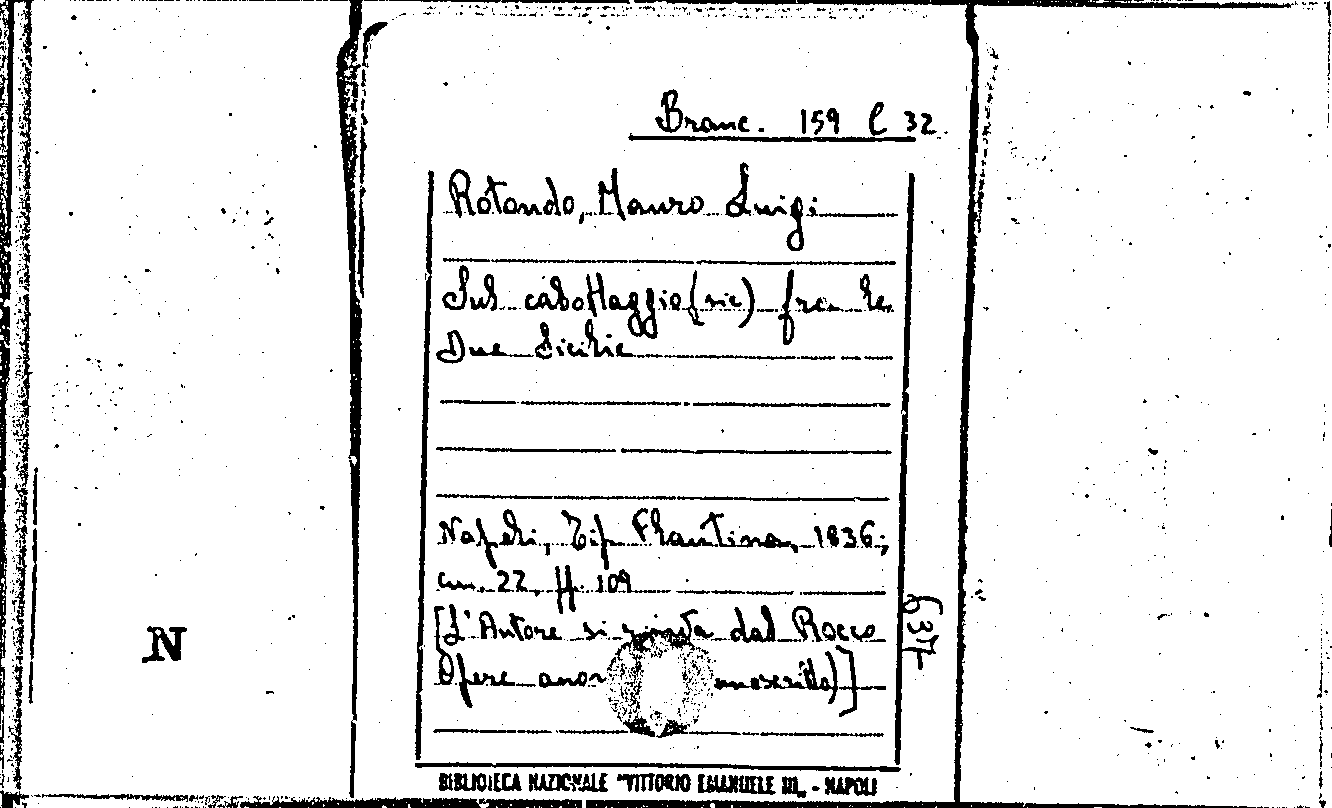 Branc. 159 C 32
Rotondo, Mauro Luigi
Sul cabottaggio (sic) fra le
Due Sicilie
Napoli, Tip. Flautina, 1836;
cm. 22, pp. 109
[L'Autore si dal Rocco
Opere manoscritto)]
637
N
BIBLIOTECA NAZIONALE "VITTORIO EMANUELE III„ - NAPOLI